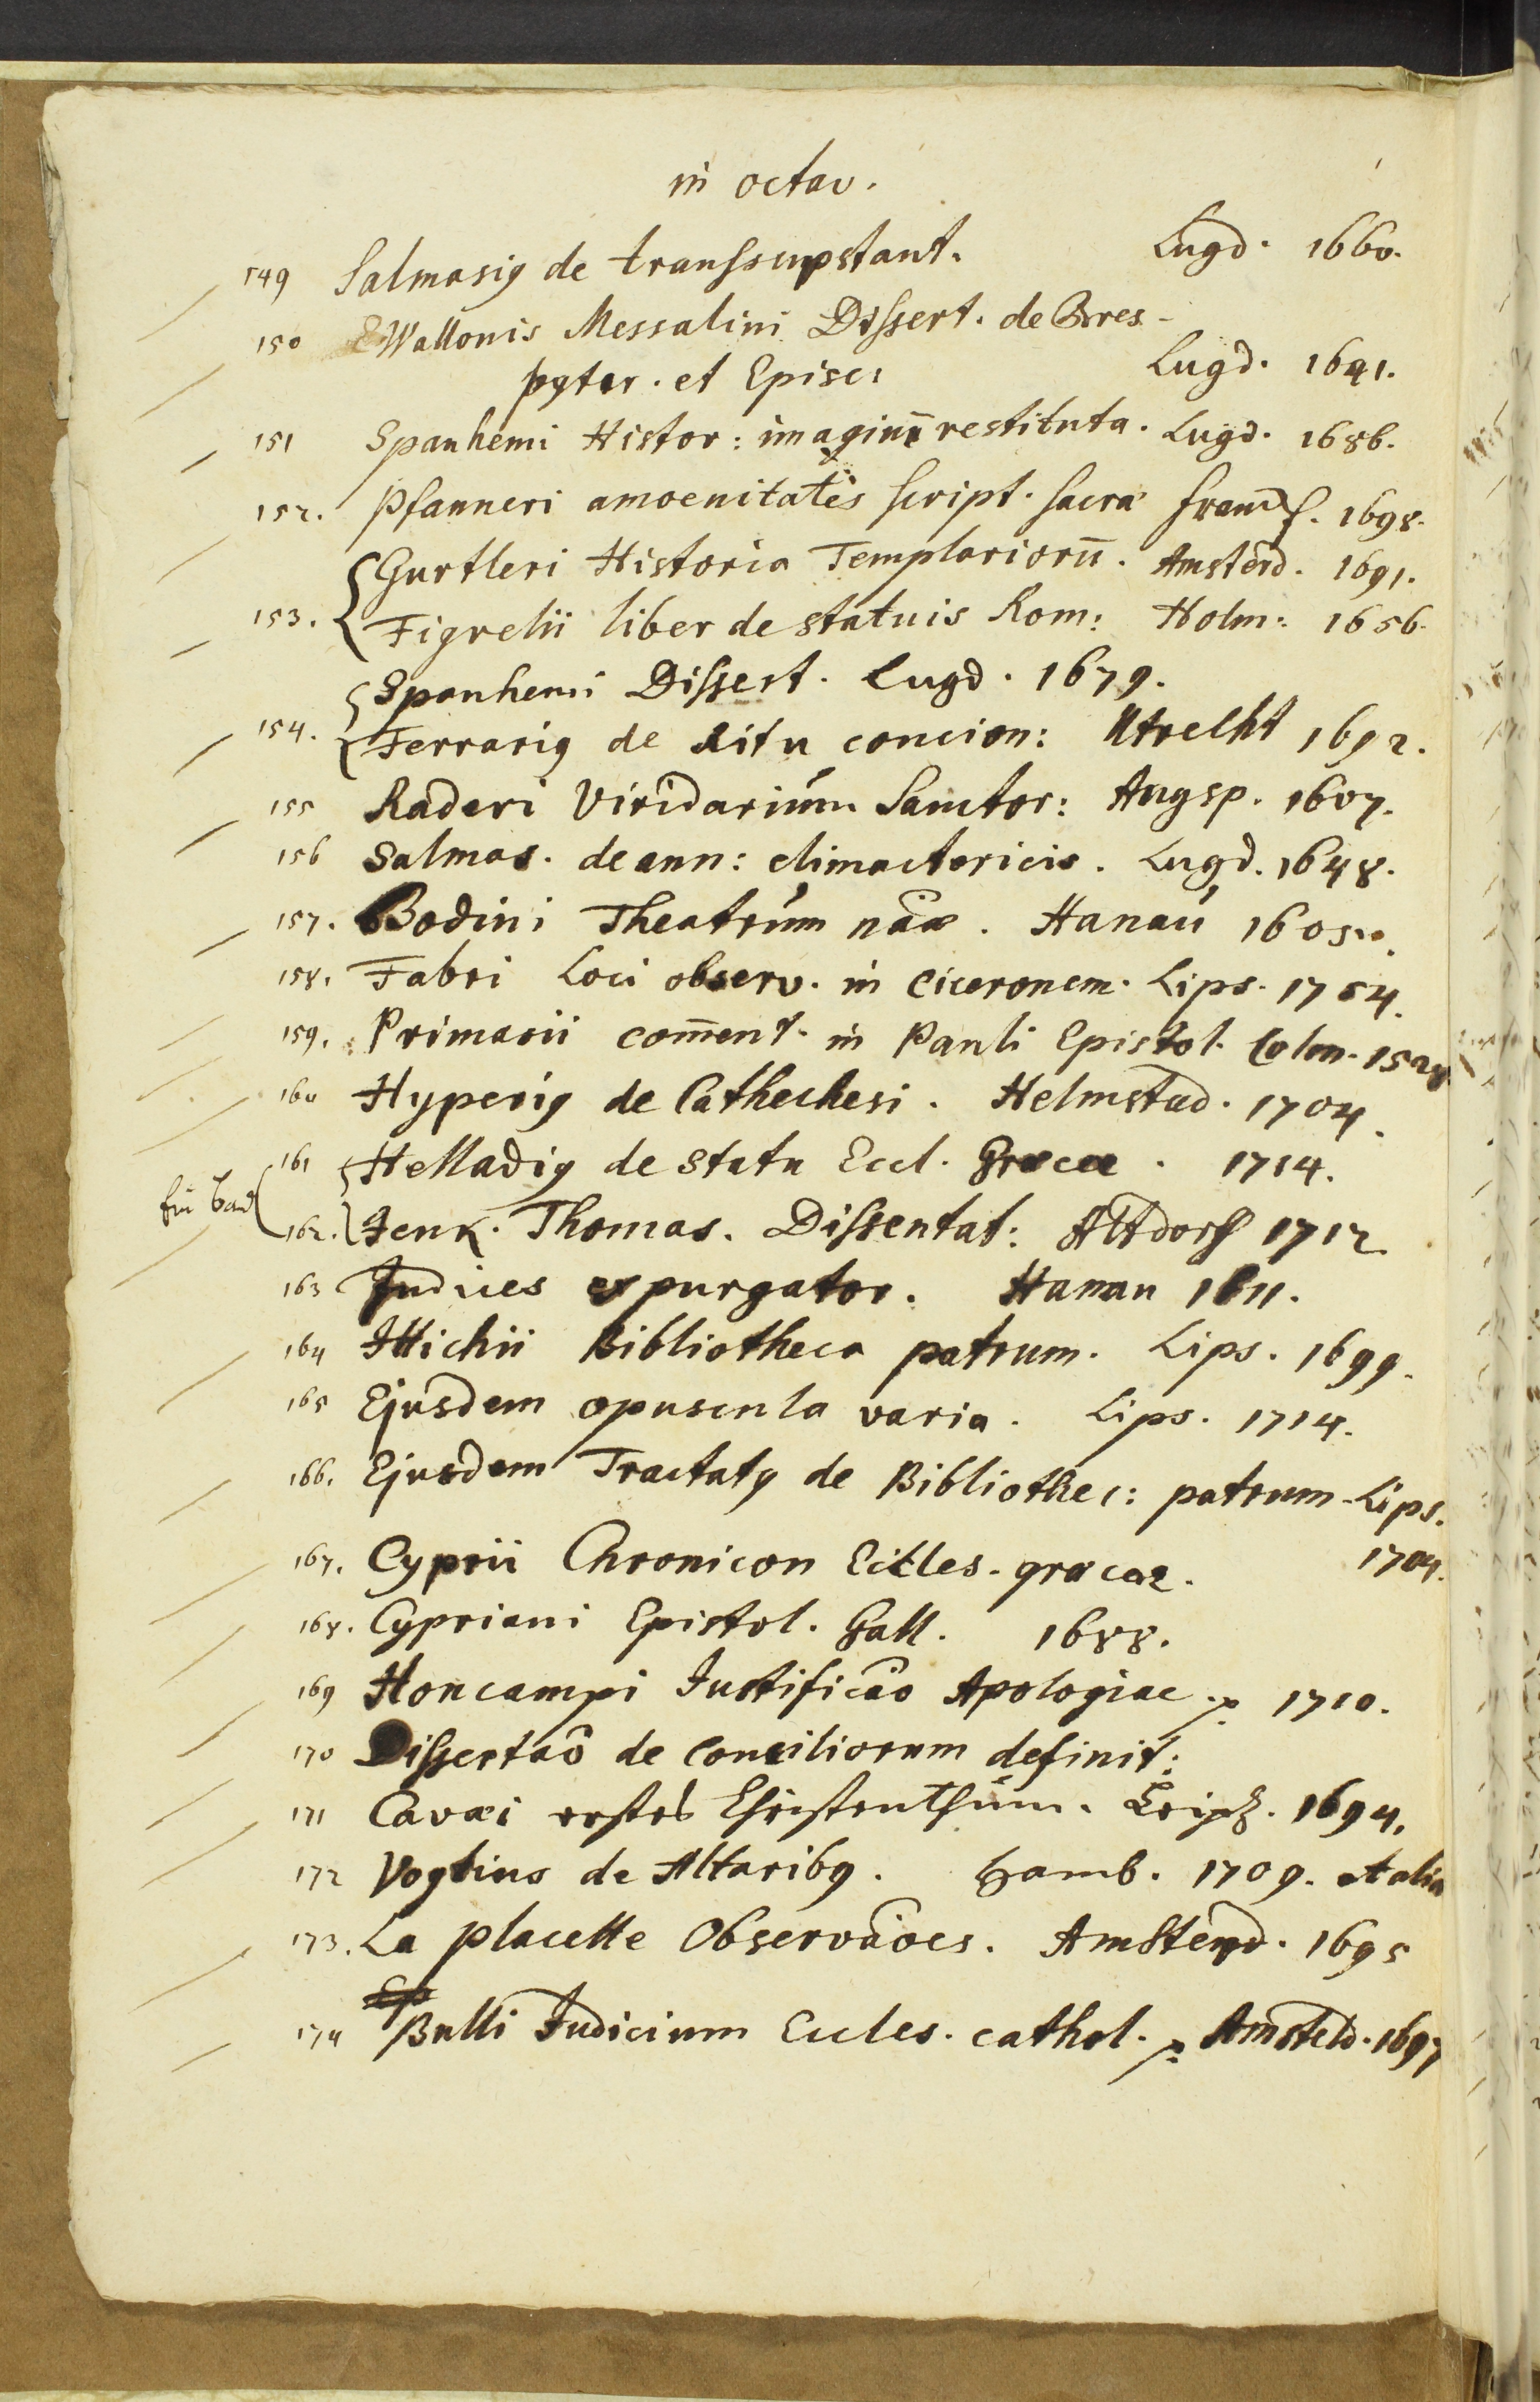 in octav.
149 Salmasig de transsupstant. Lugd. 1660.
150 Wallonis Messalini Dissert. de Bres-
pyter. et Episc: Lugd. 1641.
151 Spanhemi Histor: imaginū restituta. Lugd. 1686.
152. Pfanneri amoenitates script. sacra 1698.
Gurtleri Historia Templariorū. Amsterd. 1691.
153. Figrelii liber de statuis Rom: Holm: 1656.
Spanhemi Dissert. Lugd. 1679.
154. Ferrarig de Ritu concion: Utrecht 1692.
155 Raderi Viridarium Sanctor: Augsp. 1607.
156 Salmas. de ann: climactericis. Lugd. 1648.
157. Bodini Theatrum nãæ. Hanau 1605.
158. Fabri Loci observ. in Ciceronem. Lips. 1754.
159. Primasii com̄ent. in Pauli Epistol. Colon.
160 Hyperig de Cathechesi. Helmstad. 1704.
161 Helladig de statu Eccl. Græcæ. 1714.
162. Jenk. Thomas. Dissentat: Altdorf 1712.
163 Indices expurgator. Hanau 1611.
164 Ittichii Bibliotheca patrum. Lips. 1699.
165 Ejusdem opuscula varia. Lips. 1714.
166. Ejusdem Tractatg de Bibliothec: patrum. Lips.
1704.
167. Cyprii Chronicon Eccles. græcæ.
168. Cypriani Epistol. Gall. 1688.
169 Honcampi Justificão Apologiae 1710.
170 Dissertaõ de Conciliorum definit:
171 Cavæi erstes Christenthum. Leipz. 1694.
172 Vogtius de Altaribg. Hamb. 1709. et alia
173. La placette Observãoes. Amsterd. 1695
174 Bulli Judicium Eccles. cathol. Amsteld. 1697